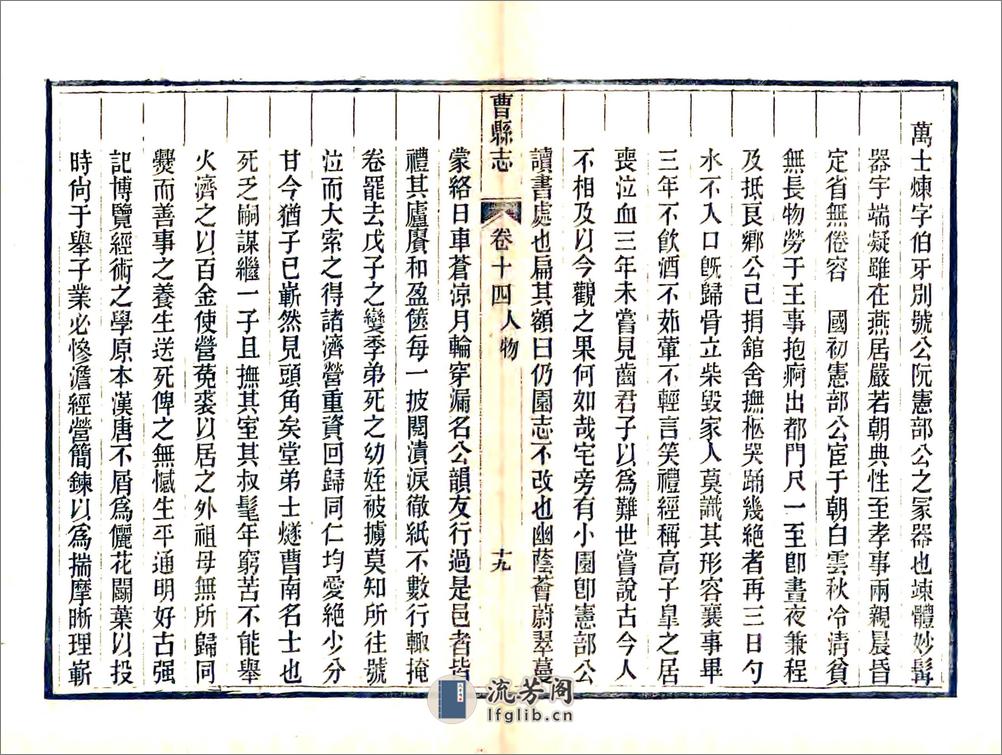 萬士煉字伯牙別號公阮憲部公之冢器也竦體妙髯
器宇端凝雖在燕居嚴若朝典性至孝事兩親晨昏
定省無倦容　國初憲部公宦于朝白雲秋冷淸貧
無長物勞于王事抱痾出都門尺一至卽晝夜兼程
及抵良鄉公已捐舘舍撫柩哭踊幾絕者再三日勺
水不入口旣歸骨立柴毀家人莫識其形容襄事畢
三年不飮酒不茹葷不輕言笑禮經稱高子皐之居
喪泣血三年未嘗見齒君子以爲難世嘗說古今人
不相及以今觀之果何如哉宅旁有小園卽憲部公
讀書處也扁其額曰仍園志不改也幽蔭薈蔚翠蔓
曹縣志
卷十四人物
十九
蒙絡日車蒼涼月輪穿漏名公韻友行過是邑者皆
禮其廬賡和盈篋每一披閱漬淚徹紙不數行輙掩
卷罷去戊子之變季弟死之幼姪被擄莫知所往號
泣而大索之得諸濟營重資回歸同仁均愛絕少分
甘今猶子已嶄然見頭角矣堂弟士燧曹南名士也
死乏嗣謀繼一子且撫其室其叔髦年窮苦不能舉
火濟之以百金使營菟裘以居之外祖母無所歸同
爨而善事之養生送死俾之無憾生平通明好古强
記博覽經術之學原本漢唐不屑爲儷花鬭葉以投
時尙于舉子業必慘澹經營簡鍊以爲揣摩晰理嶄
流芳阁
lfglib.cn